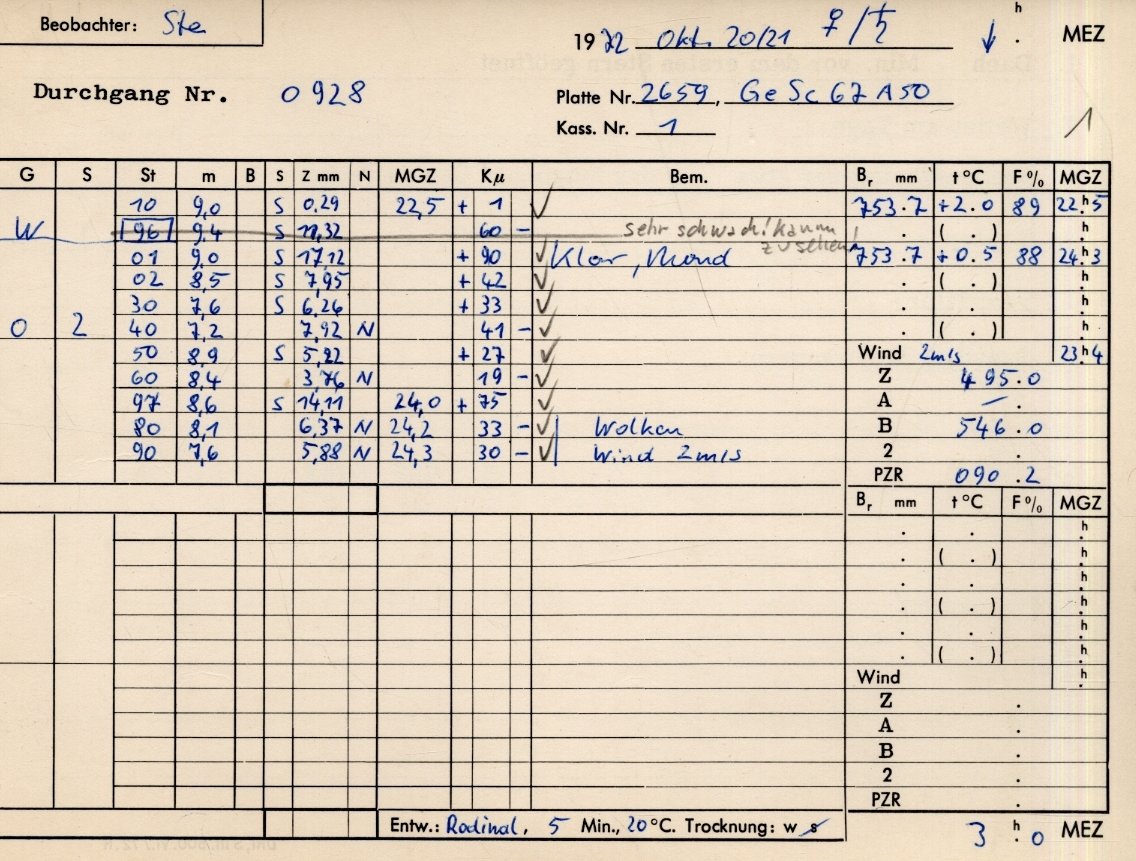 Beobachter: Ste
1972 Okt. 20/21 ♀/♄ ↓ h . MEZ
Durchgang Nr. 0928
Platte Nr. 2659, GeSc67A50
Kass. Nr. 1
1
G S St m B S Z mm N MGZ Kµ Bem. Br mm t °C F % MGZ
10 9,0 S 0,29 22,5 + 1 ✓ 753.7 +2.0 89 22h.5
W 96 9,4 S 11,32 60 – sehr schwach! kaum zu sehen! . ( . ) h.
01 9,0 S 17,12 + 90 ✓ Klar, Mond 753.7 +0.5 88 24h.3
02 8,5 S 7,95 + 42 ✓ . ( . ) h.
30 7,6 S 6,26 + 33 ✓ . . h.
O 2 40 7,2 7,92 N 41 – ✓ . ( . ) h.
50 8,9 S 5,22 + 27 ✓ Wind 2m/s 23h.4
60 8,4 3,76 N 19 – ✓ Z 495.0
97 8,6 S 14,11 24,0 + 75 ✓ A – .
80 8,1 6,37 N 24,2 33 – ✓ Wolken B 546.0
90 7,6 5,88 N 24,3 30 – ✓ Wind 2m/s 2 .
PZR 090.2
Br mm t °C F % MGZ
. . h.
. ( . ) h.
. . h.
. ( . ) h.
. . h.
. ( . ) h.
Wind h.
Z .
A .
B .
2 .
PZR .
Entw.: Rodinal, 5 Min., 20 °C. Trocknung: w s
3 h. 0 MEZ